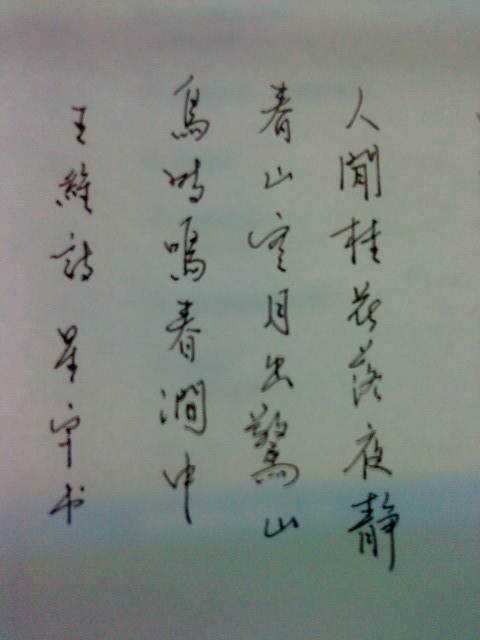 人閒桂花落夜靜
春山空月出驚山
鳥時鳴春澗中
王維詩 星宇书